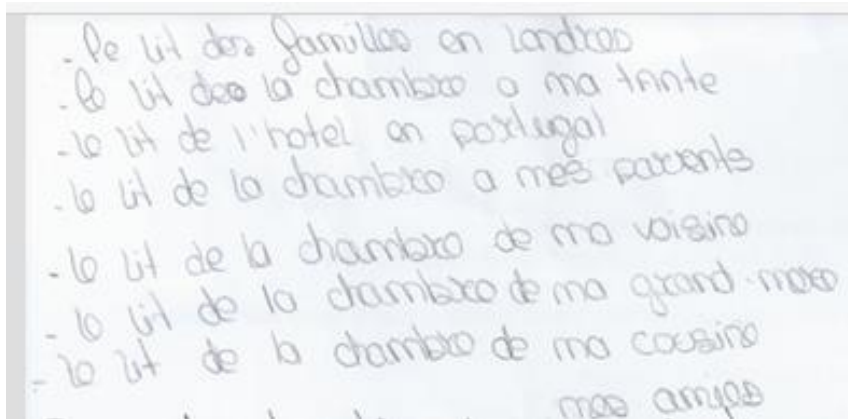 - Le lit des familles en Londres
- le lit de la chambre a ma tante
- le lit de l'hotel en portugal
- le lit de la chambre a mes parents
- le lit de la chambre de ma voisine
- le lit de la chambre de ma grand-mere
- le lit de la chambre de ma cousine
mes amies